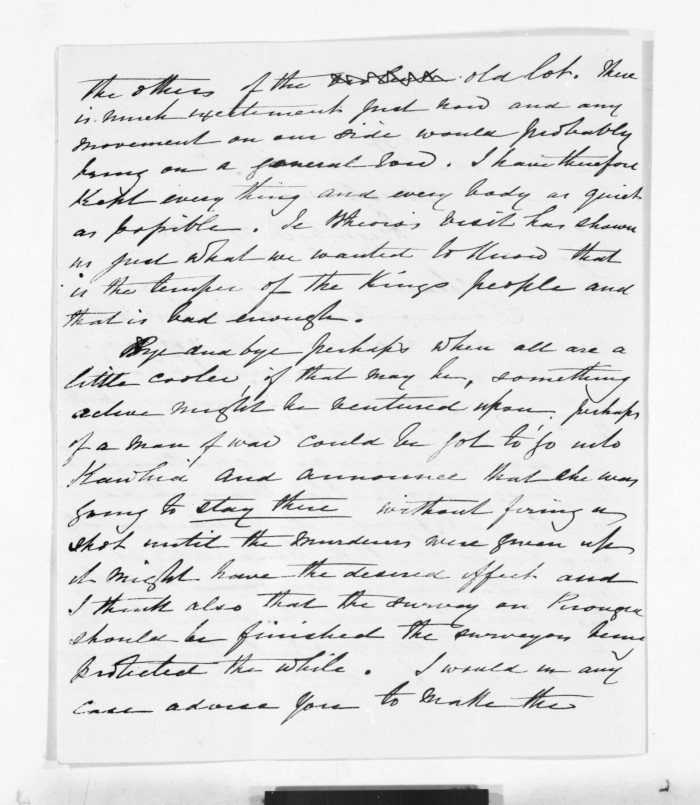 the others of the old lot. There
is much excitement just now and any
movement on our side would probably
bring on a general row. I have therefore
Kept every thing and every body as quiet
as possible. Te Wheoro's visit has shown
us just what we wanted to Know that
is the temper of the Kings people and
that is bad enough.
Bye and bye perhaps when all are a
little cooler, if that may be, something
active might be ventured upon. perhaps
if a man of war could be got to go into
Kawhia and announce that she was
going to stay there without firing a
shot until the murderers were given up
it might have the desired effect and
I think also that the survey on
should be finished the surveyors being
protected the while. I would in any
case advise you to make the